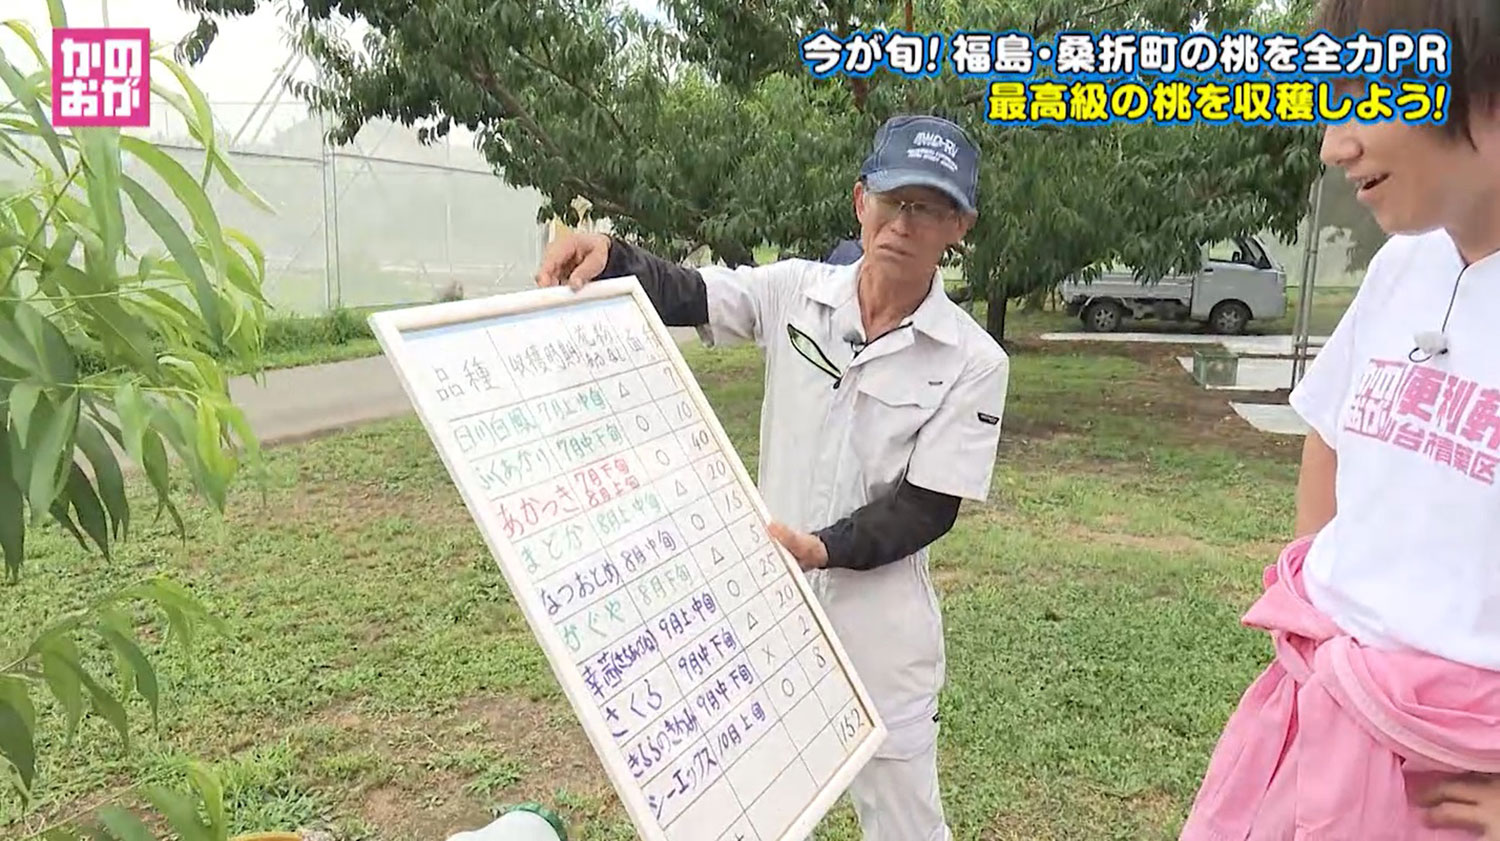 かのおが
今が旬！福島・桑折町の桃を全力PR
最高級の桃を収穫しよう！
品種 収穫時期 花粉
川白鳳 7月上中旬 △ 7
ふくあかり 7月中下旬 ○ 10
あかつき 7月下旬 8月上旬 ○ 40
まどか 8月上中旬 △ 20
なつおとめ 8月中旬 ○ 15
かぐや 8月下旬 △ 5
幸茜 9月上中旬 ○ 25
さくら 9月中下旬 △ 20
きららのきわみ 9月中下旬 × 2
シーエックス 10月上旬 ○ 8
152
かの
おが
便利軒
台